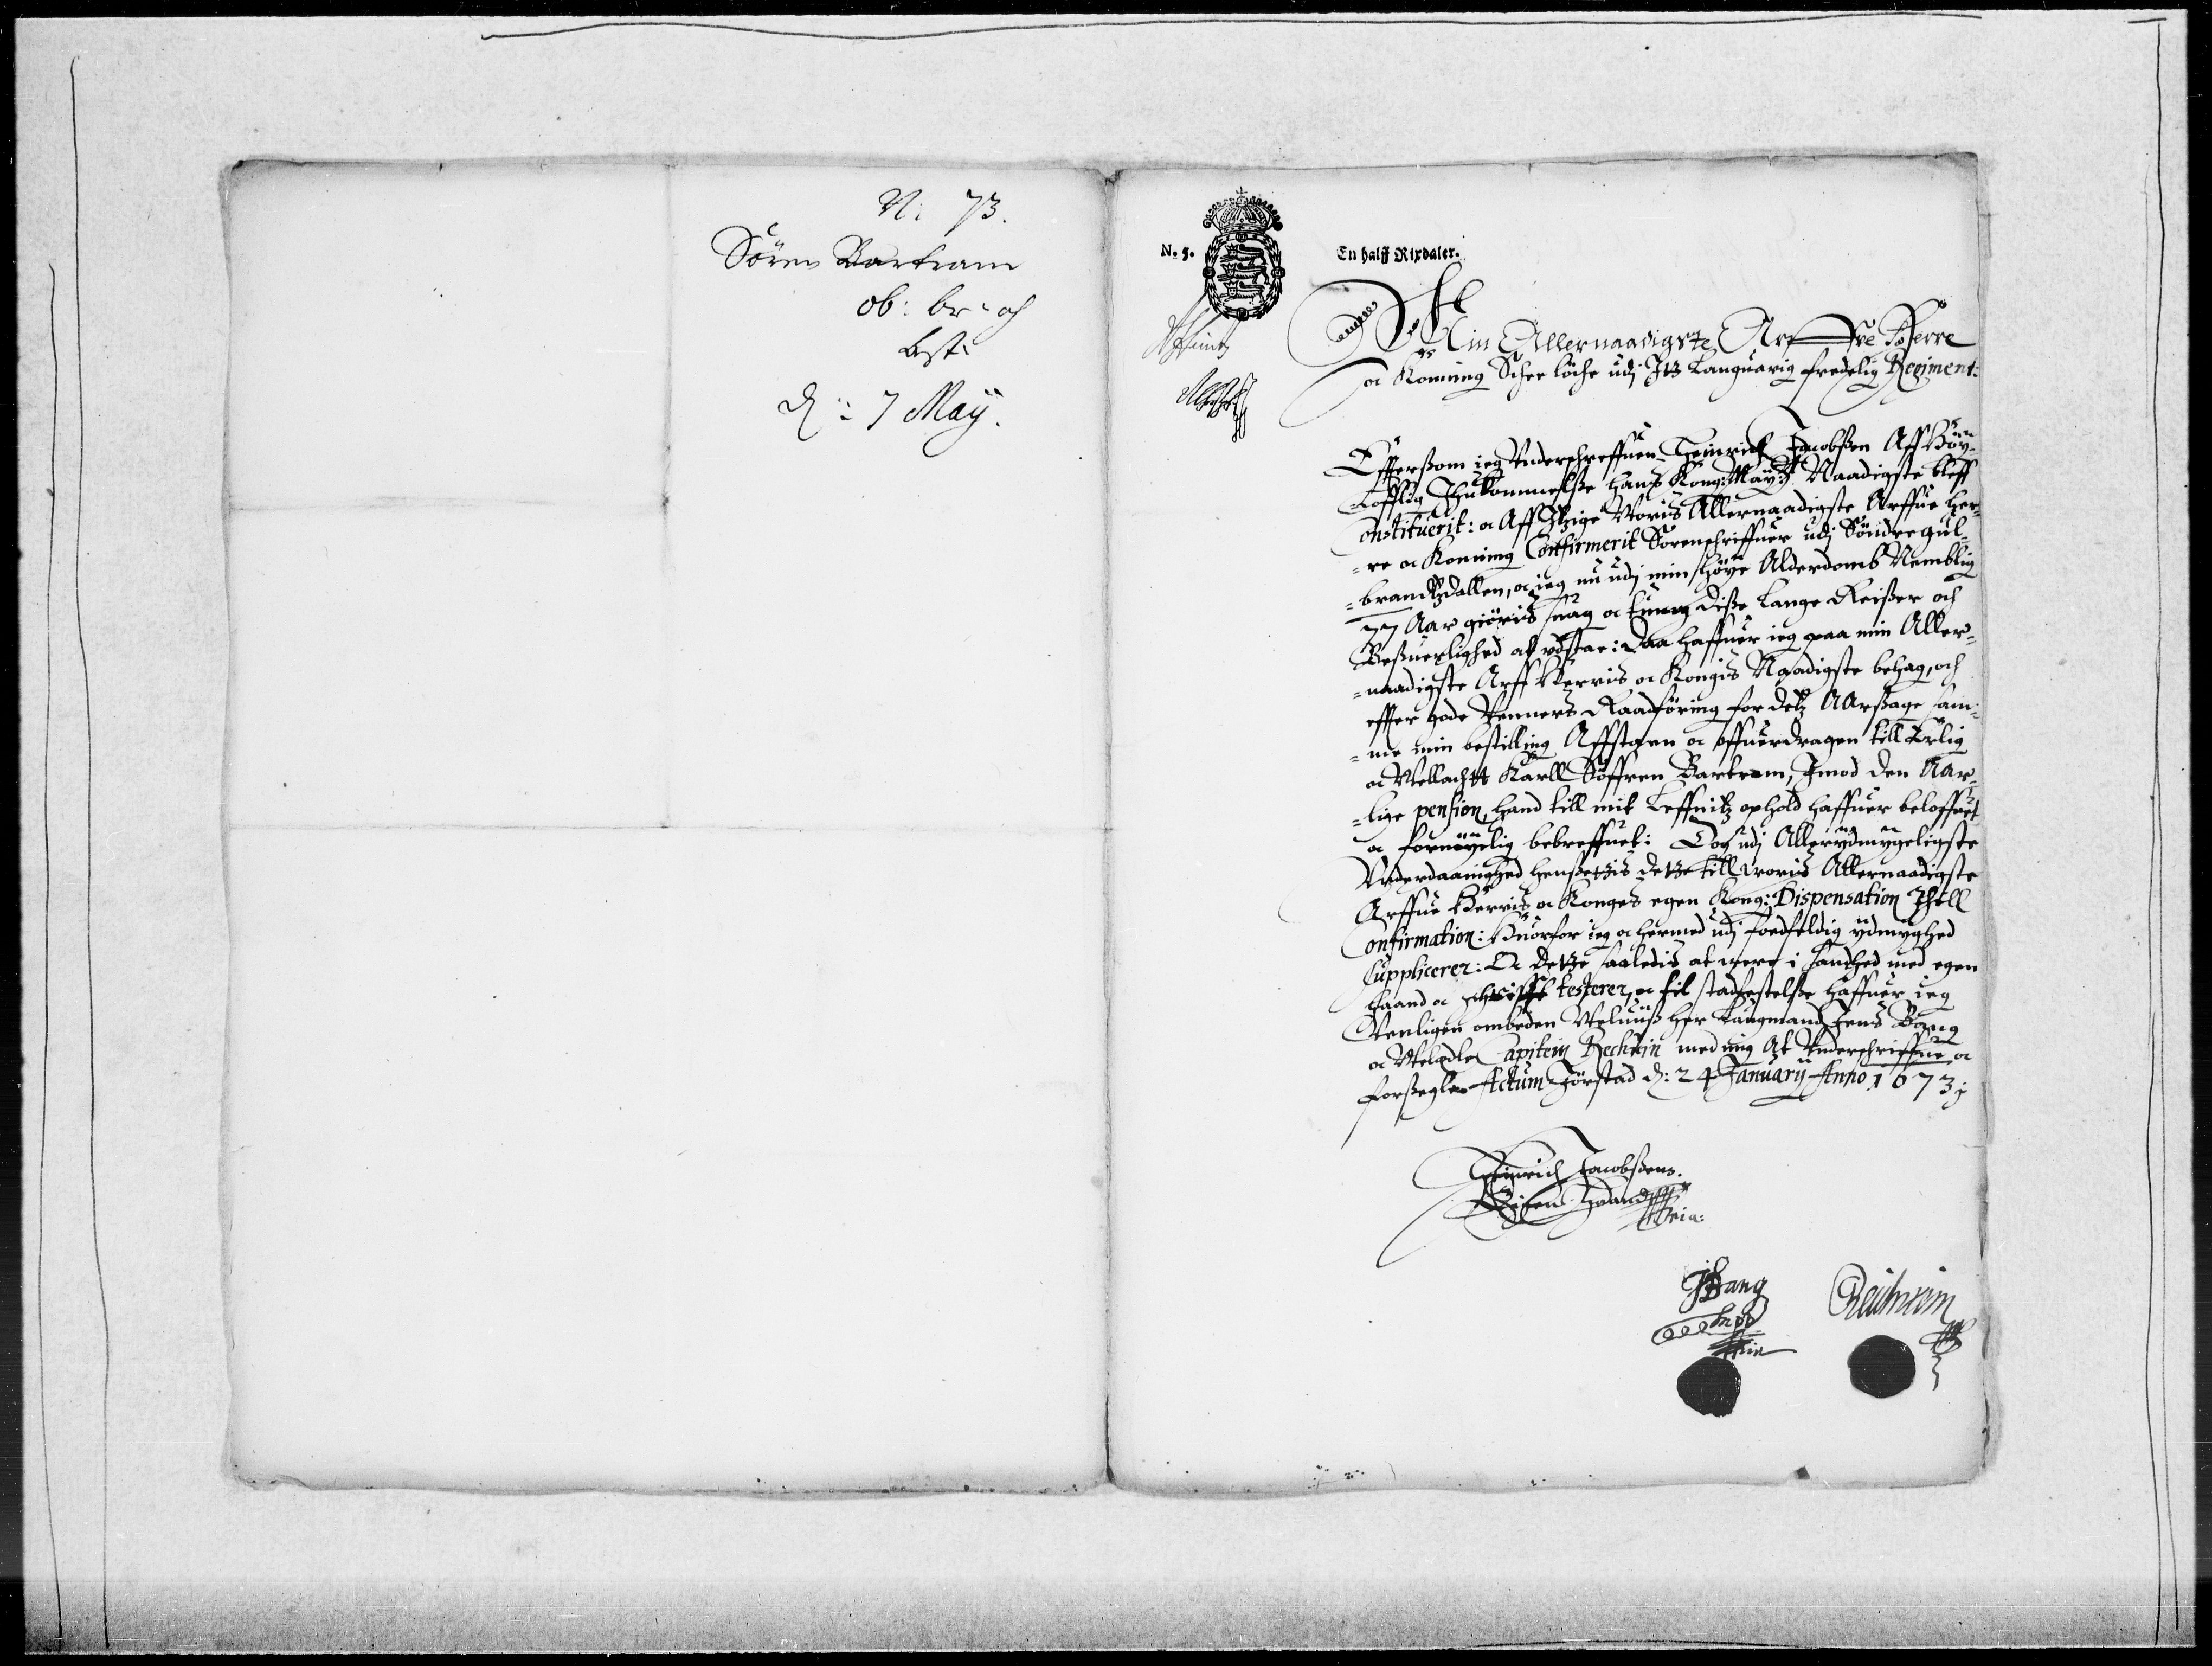 N: 73.
Sören Bartram
ob: br: og
best:
d: 7 May.
No. 5.
En halff Rixdaler.
Min Allernaadigste Arffue Herre
oc Konning Schee löche udj Itz Languarig fredelig Regiment:
Effterßom ieg Underschreffuen Heinrich Jacobßen Aff Höy-
Lofflig Ihukommelße Hans Kong: May:tt Naadigste bleff
Constituerit: oc Aff Itzige Woris Allernaadigste Arffue Her-
=re oc Konning Confirmerit Sorenschriffuer udj Söndre gul-
=brandtzdallen, oc ieg nu udj min höye Alderdomb Nemblig
77 Aar giöris suag oc tung diße lange Reißer och
Beßuerlighed at udstae: Daa haffuer ieg paa min Aller-
=naadigste Arff Herris oc Kongis Naadigste behag, och
effter gode Venners Raadföring for detz Aarßage sam-
=me min bestilling Affstaaen oc offuerdragen till Erlig
oc Wellacht Karll Söffren Bartram, Imod den Aar-
=lige pension, hand till mit Leffnitz ophold haffuer beloffuet
oc fornöyelig bebreffuet: Dog udj Allerydmygeligste
Underdaanighed henßetzis dette till Woris Allernaadigste
Arffue Herris oc Konges egen Kong: Dispensation Ihtell
Confirmation: Huorfor ieg oc hermed udj fodfeldig ydmyghed
Supplicerer: Oc dette saaledis at were i Sandhed med egen
haand oc schrifft testerer, oc til stadfestelße haffuer ieg
Venligen ombeden Weluiiß Her Laugmand Jens Bang
oc Weledle Capitein Rechtin med mig At Underschriffue oc
forßegle Actum Jörstad d: 24 January Anno 1673
Heinrich Jacobßens.
Eigen Haand
JBang
Empp